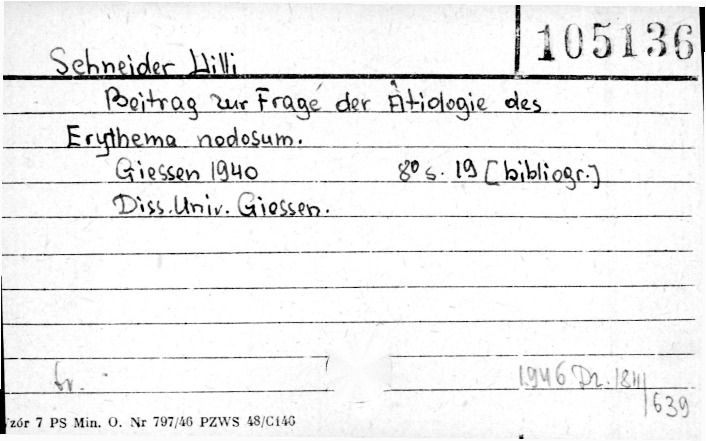 105136
Schneider Willi
Beitrag zur Frage der Ätiologie des
Erythema nodosum.
Giessen 1940 8° s. 19 [bibliogr.]
Diss. Univ. Giessen.
1946 Dz.
639
zór 7 PS Min. O. Nr 797/46 PZWS 48/C146